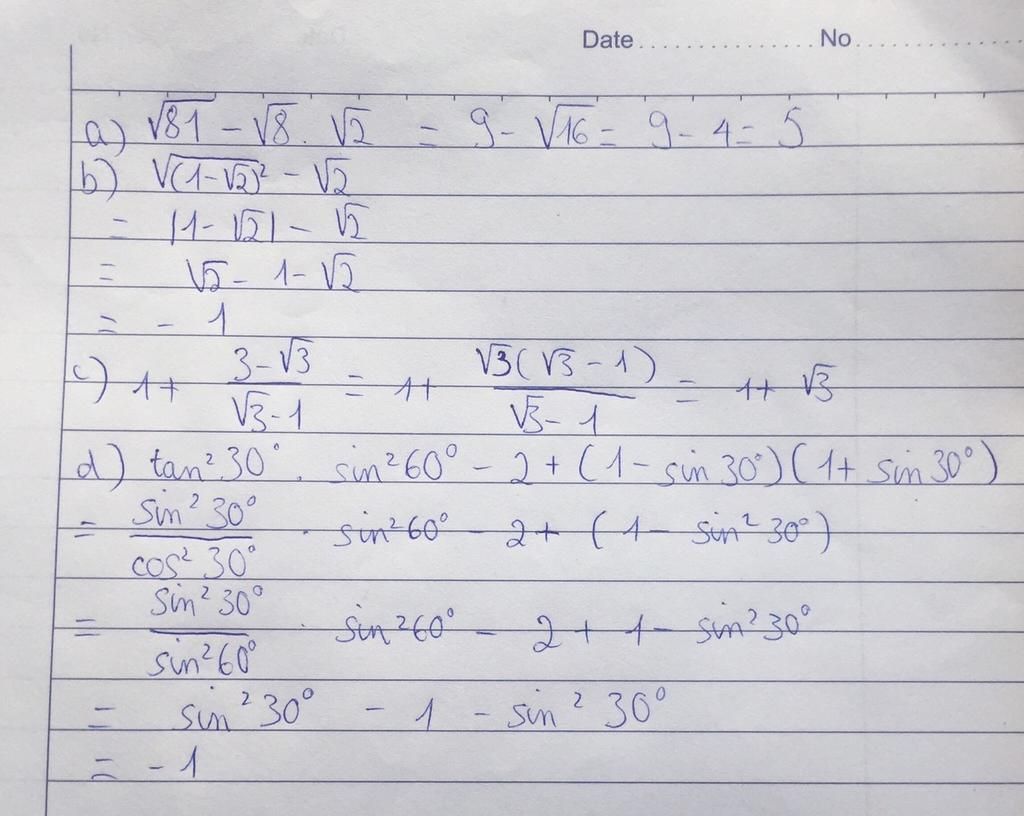 Date ............... No ...............
a) √81 - √8 . √2 = 9 - √16 = 9 - 4 = 5
b) √(1-√2)² - √2
= |1-√2| - √2
= √2 - 1 - √2
= - 1
c) 1 + (3-√3)/(√3-1) = 1 + √3(√3-1)/(√3-1) = 1 + √3
d) tan²30° . sin²60° - 2 + (1 - sin 30°)(1 + sin 30°)
= sin²30°/cos²30° . sin²60° - 2 + (1 - sin²30°)
= sin²30°/sin²60° . sin²60° - 2 + 1 - sin²30°
= sin²30° - 1 - sin²30°
= - 1